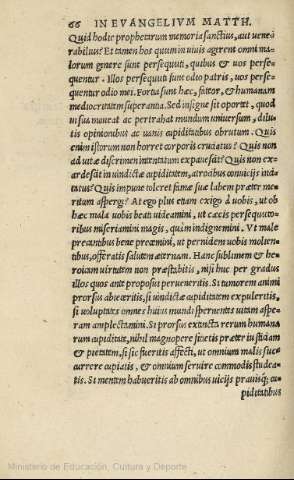 66 IN EVANGELIVM MATTH.
Quid hodie prophetarum memoria sanctius, aut venerabilius? Et tamen hos quum in vivis agerent omni ma
lorum genere sunt persequuti, quibus & vos perse-
quentur. Illos persequuti sunt odio patris, vos perse-
quentur odio mei. Fortia sunt hæc, fateor, & humanam
mediocritatem superantia. Sed insigne sit oportet, quod
vi sua moveat ac pertrahat mundum universum, dilu
tis opinionibus ac vanis cupiditatibus obrutum. Quis
enim istorum non horret corporis cruciatus? Quis non
ad vitæ discrimen intentatum expavescit? Quis non ex-
ardescit in vindictæ cupiditatem, atrocibus convicijs inci
tatus? Quis impune toleret famæ suæ labem præter me-
ritum aspergi? At ego plus etiam exigo à vobis, ut ob
hæc mala vobis beati videamini, ut cæcis persequuto-
ribus miseriamini magis, quàm indignemini. Vt male
precantibus bene precemini, ut perniciem vobis molien-
tibus, offeratis salutem æternam. Hanc sublimem & he-
roicam virtutem non præstabitis, nisi huc per gradus
illos quos ante proposui perveneritis. Si tumorem animi
prorsus abieceritis, si vindictæ cupiditatem expuleritis,
si voluptates omnes huius mundi spernentes vitam aspe-
ram amplectamini. Si prorsus extincta rerum humana
rum cupiditate, nihil magnopere sitietis præter iustitiam
& pietatem, si sic fueritis affecti, ut omnium malis suc-
currere cupiatis, & omnium servire commodis studea-
tis. Si mentem habueritis ab omnibus vicijs pravisq; cu
piditatibus
Ministerio de Educación, Cultura y Deporte